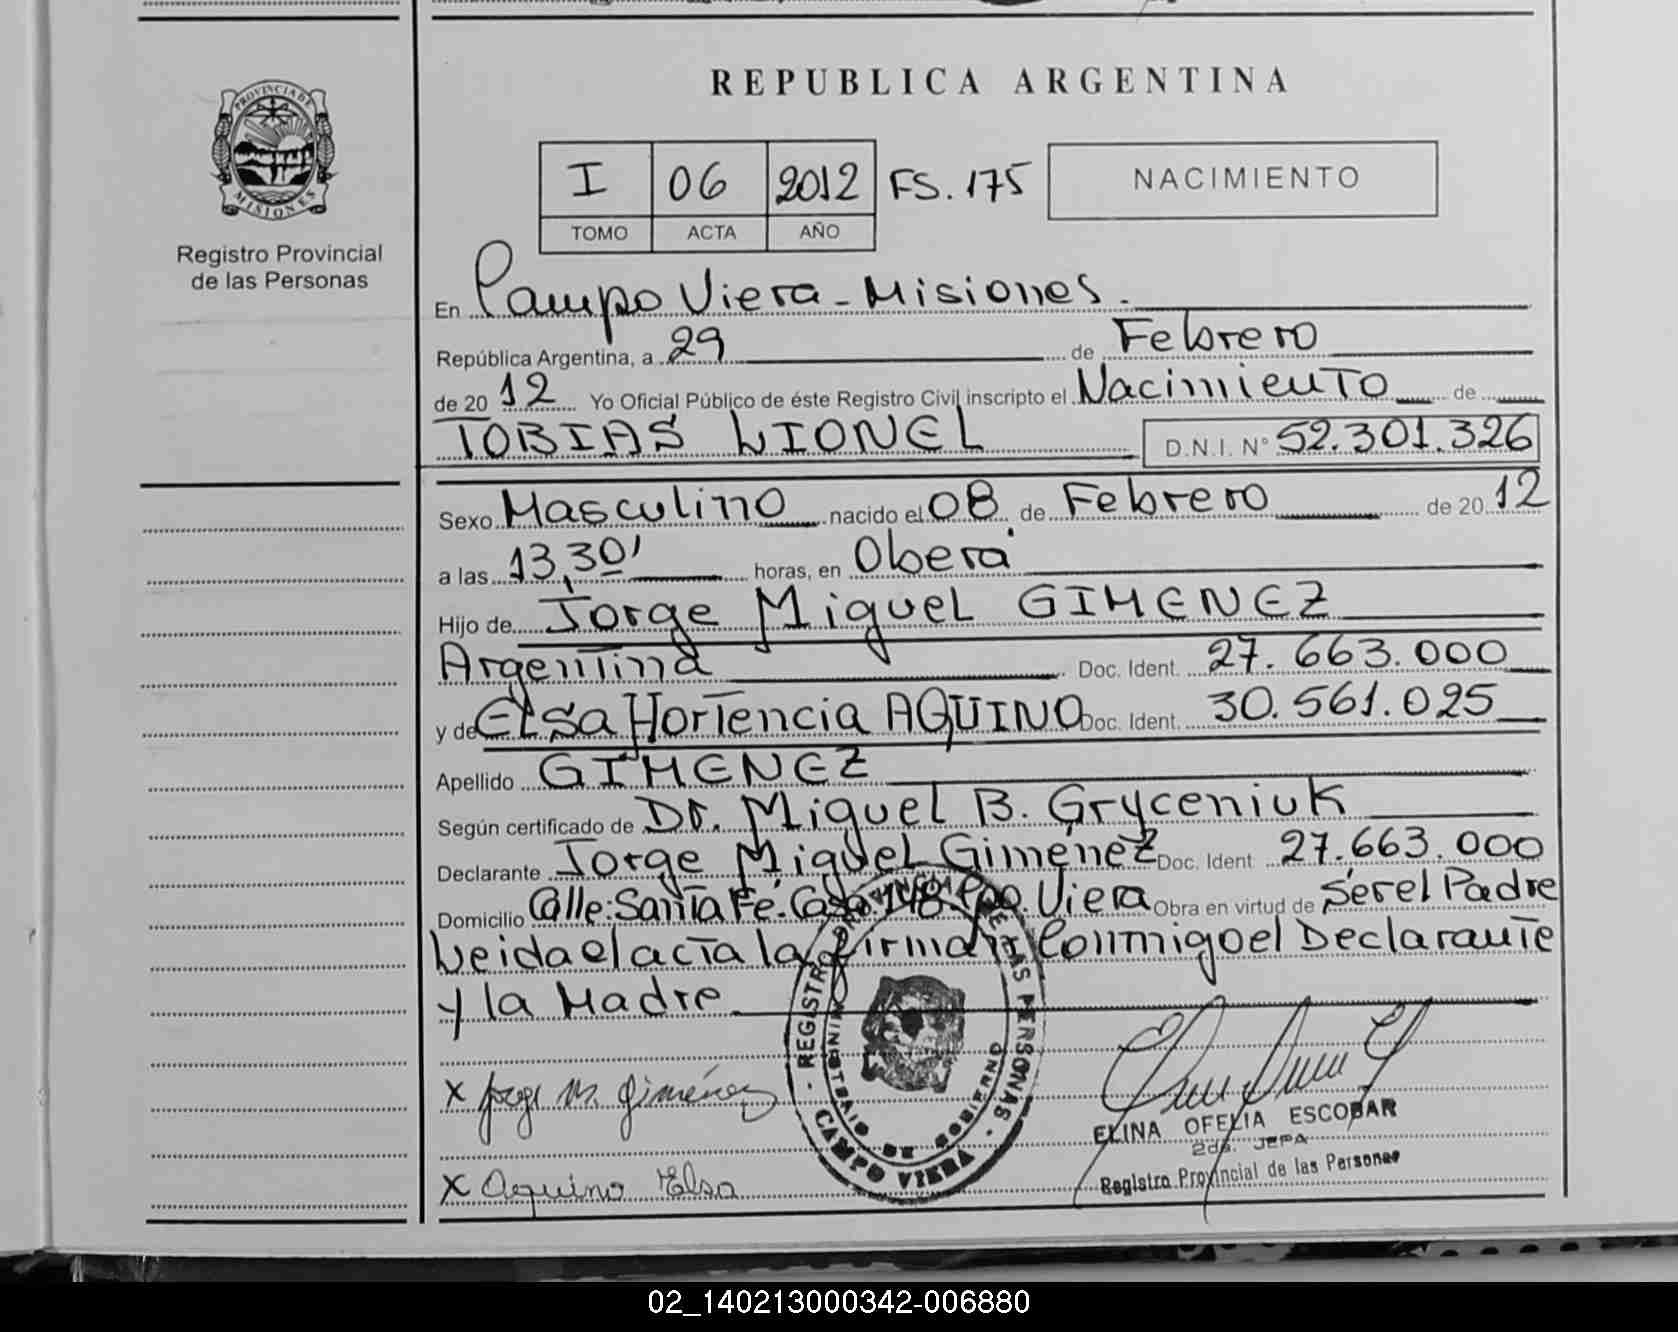 PROVINCIA DE
MISIONES
Registro Provincial
de las Personas
REPUBLICA ARGENTINA
I 06 2012 FS. 175 NACIMIENTO
TOMO ACTA AÑO
En Campo Viera - Misiones.
República Argentina, a 29 de Febrero
de 20 12 Yo Oficial Público de éste Registro Civil inscripto el Nacimiento de
TOBIAS LIONEL D.N.I. N° 52.301.326
Sexo Masculino nacido el 08 de Febrero de 20 12
a las 13,30' horas, en Oberá
Hijo de Jorge Miguel GIMENEZ
Argentina Doc. Ident. 27.663.000
y de Elsa Hortencia AQUINO Doc. Ident. 30.561.025
Apellido GIMENEZ
Según certificado de Dr. Miguel B. Gryceniuk
Declarante Jorge Miguel Gimenez Doc. Ident 27.663.000
Domicilio Calle: Santa Fé. Casa 148. Cpo. Viera Obra en virtud de Ser el Padre
Leida el acta la firman Conmigo el Declarante
y la Madre
REGISTRO PROVINCIAL DE LAS PERSONAS
MINISTERIO DE GOBIERNO
CAMPO VIERA
x Jorge M. Giménez
ELINA OFELIA ESCOBAR
2da. JEFA
Registro Provincial de las Personas
x Aquino Elsa
02_140213000342-006880